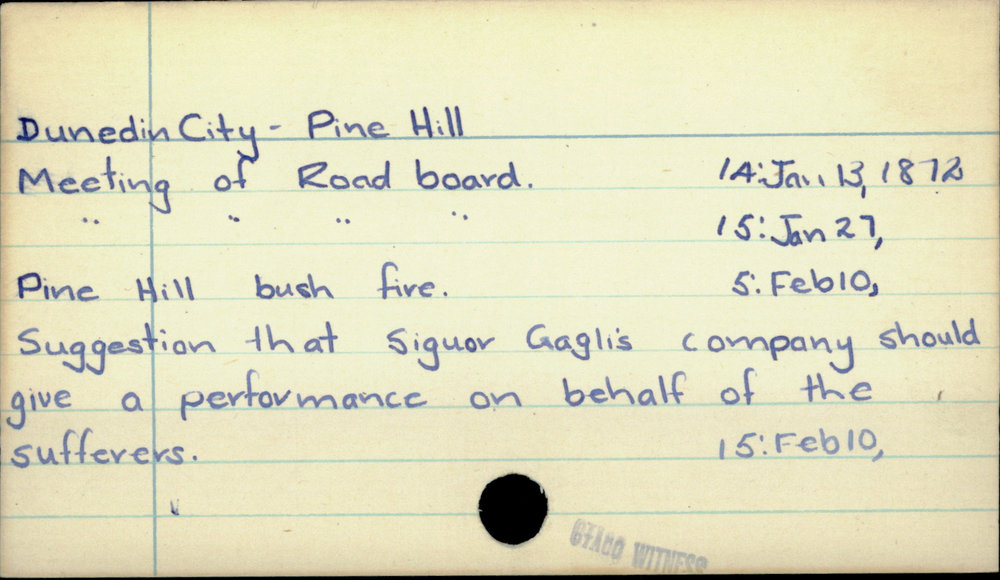 Dunedin City - Pine Hill
Meeting of Road board. 14: Jan. 13, 1872
" " " " 15: Jan 27,
Pine Hill bush fire. 5: Feb 10,
Suggestion that Siguor Gagli's company should
give a performance on behalf of the
sufferers. 15: Feb 10,
OTAGO WITNESS